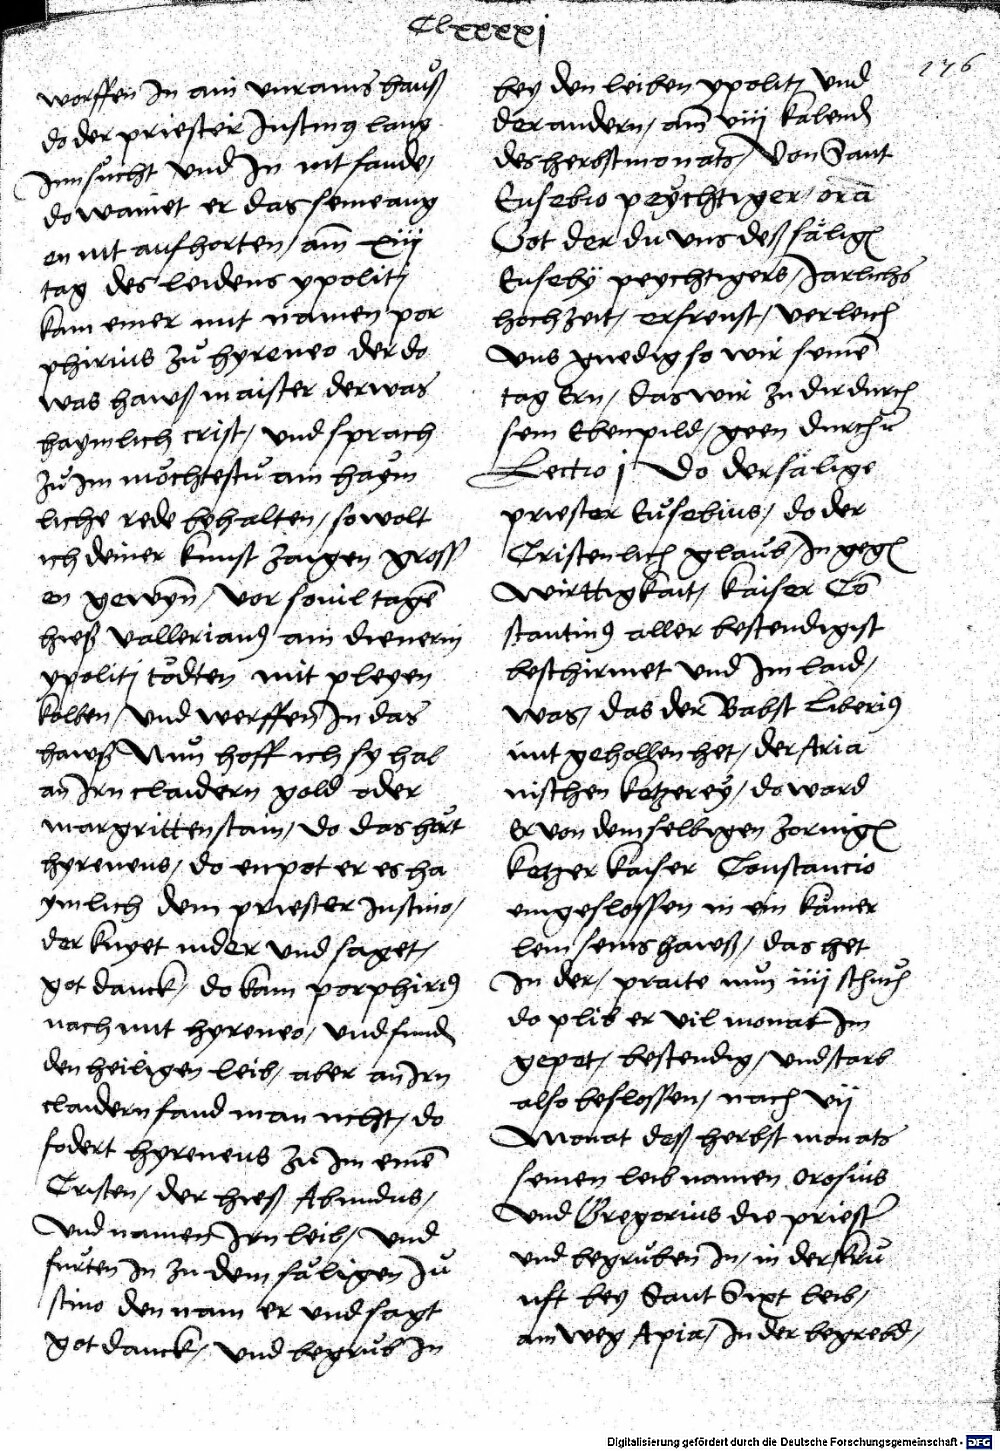 Clxxxxj
176
worffen In ain unrains hauß
do der priester Justin9 lang
Inn sucht und In nit fande/
do wainet er das seine aug
en nit aufhorten/ am xiij
tag des leidens ypolit/
kam einer mit namen por
phirius zů hyreneo der do
was hawß maister der was
haymlich crist/ und sprach
zů im möchtestu ain haym
liche rede behalten/ so wolt
ich deiner kunst zaigen gross
en gewyn/ vor sovil tagē
hieß Vallerian9 ain dienerin
ypoliti tödten mit pleyen
kolben/ und werffen In das
hawß Nun hoff ich sy hal
an Irn claidern gold oder
margrittenstain/ do das hört
hyreneus/ do enpot er es ha
ymlich dem priester Justino/
der knyet nider und saget/
got danck/ do kam porphiri9
nach mit hyreneo/ und fund
den heiligen leib/ aber an Irn
claidern fand man nicht/ do
fodert hyreneus zů Im einē
Cristen/ der hieß Abundus/
und namen Irn leib/ und
fůrten In zu dem säligen Ju
stino den nam er und sagt
got danck/ und begrůb In
bey den leiben ypoliti und
der andern/ am viij kalend
des herbstmonats/ Von Sant
Eusebio peychtiger/ orā
Got der du uns deß sälig
Euseby peychtigers/ Jarlichs
hochzeit/ erfreust/ verleich
uns gnedig so wir seinē
tag Ern/ das wir zu dir durch
sein Ebenpild/ geen durch
Lectio j Do der sälige
priester Eůsebius/ do der
Cristenlich glaub/ In geg
wirttigkait/ kaiser Cō
stantin9 aller bestendigist
beschirmet und Im laid/
was/ das der Babst Liberi9
mit gehollen het/ der Aria
nischen ketzerey/ do ward
er von demselbigen zornig
ketzer kaiser Constancio
eingeslossen in ein kamer
lein seins hawß/ das het
In der/ praite nun iiij schuch
do plib er vil monat Im
gepet/ bestendig/ und starb
also beslossen/ nach vij
Monat deß herbst monats
seinen leib namen Orosius
und Gregorius die priester
und begrůben In/ in der kru
uft bey Sant Sixt leib/
am weg Apia/ In der begrebd/
Digitalisierung gefördert durch die Deutsche Forschungsgemeinschaft - DFG